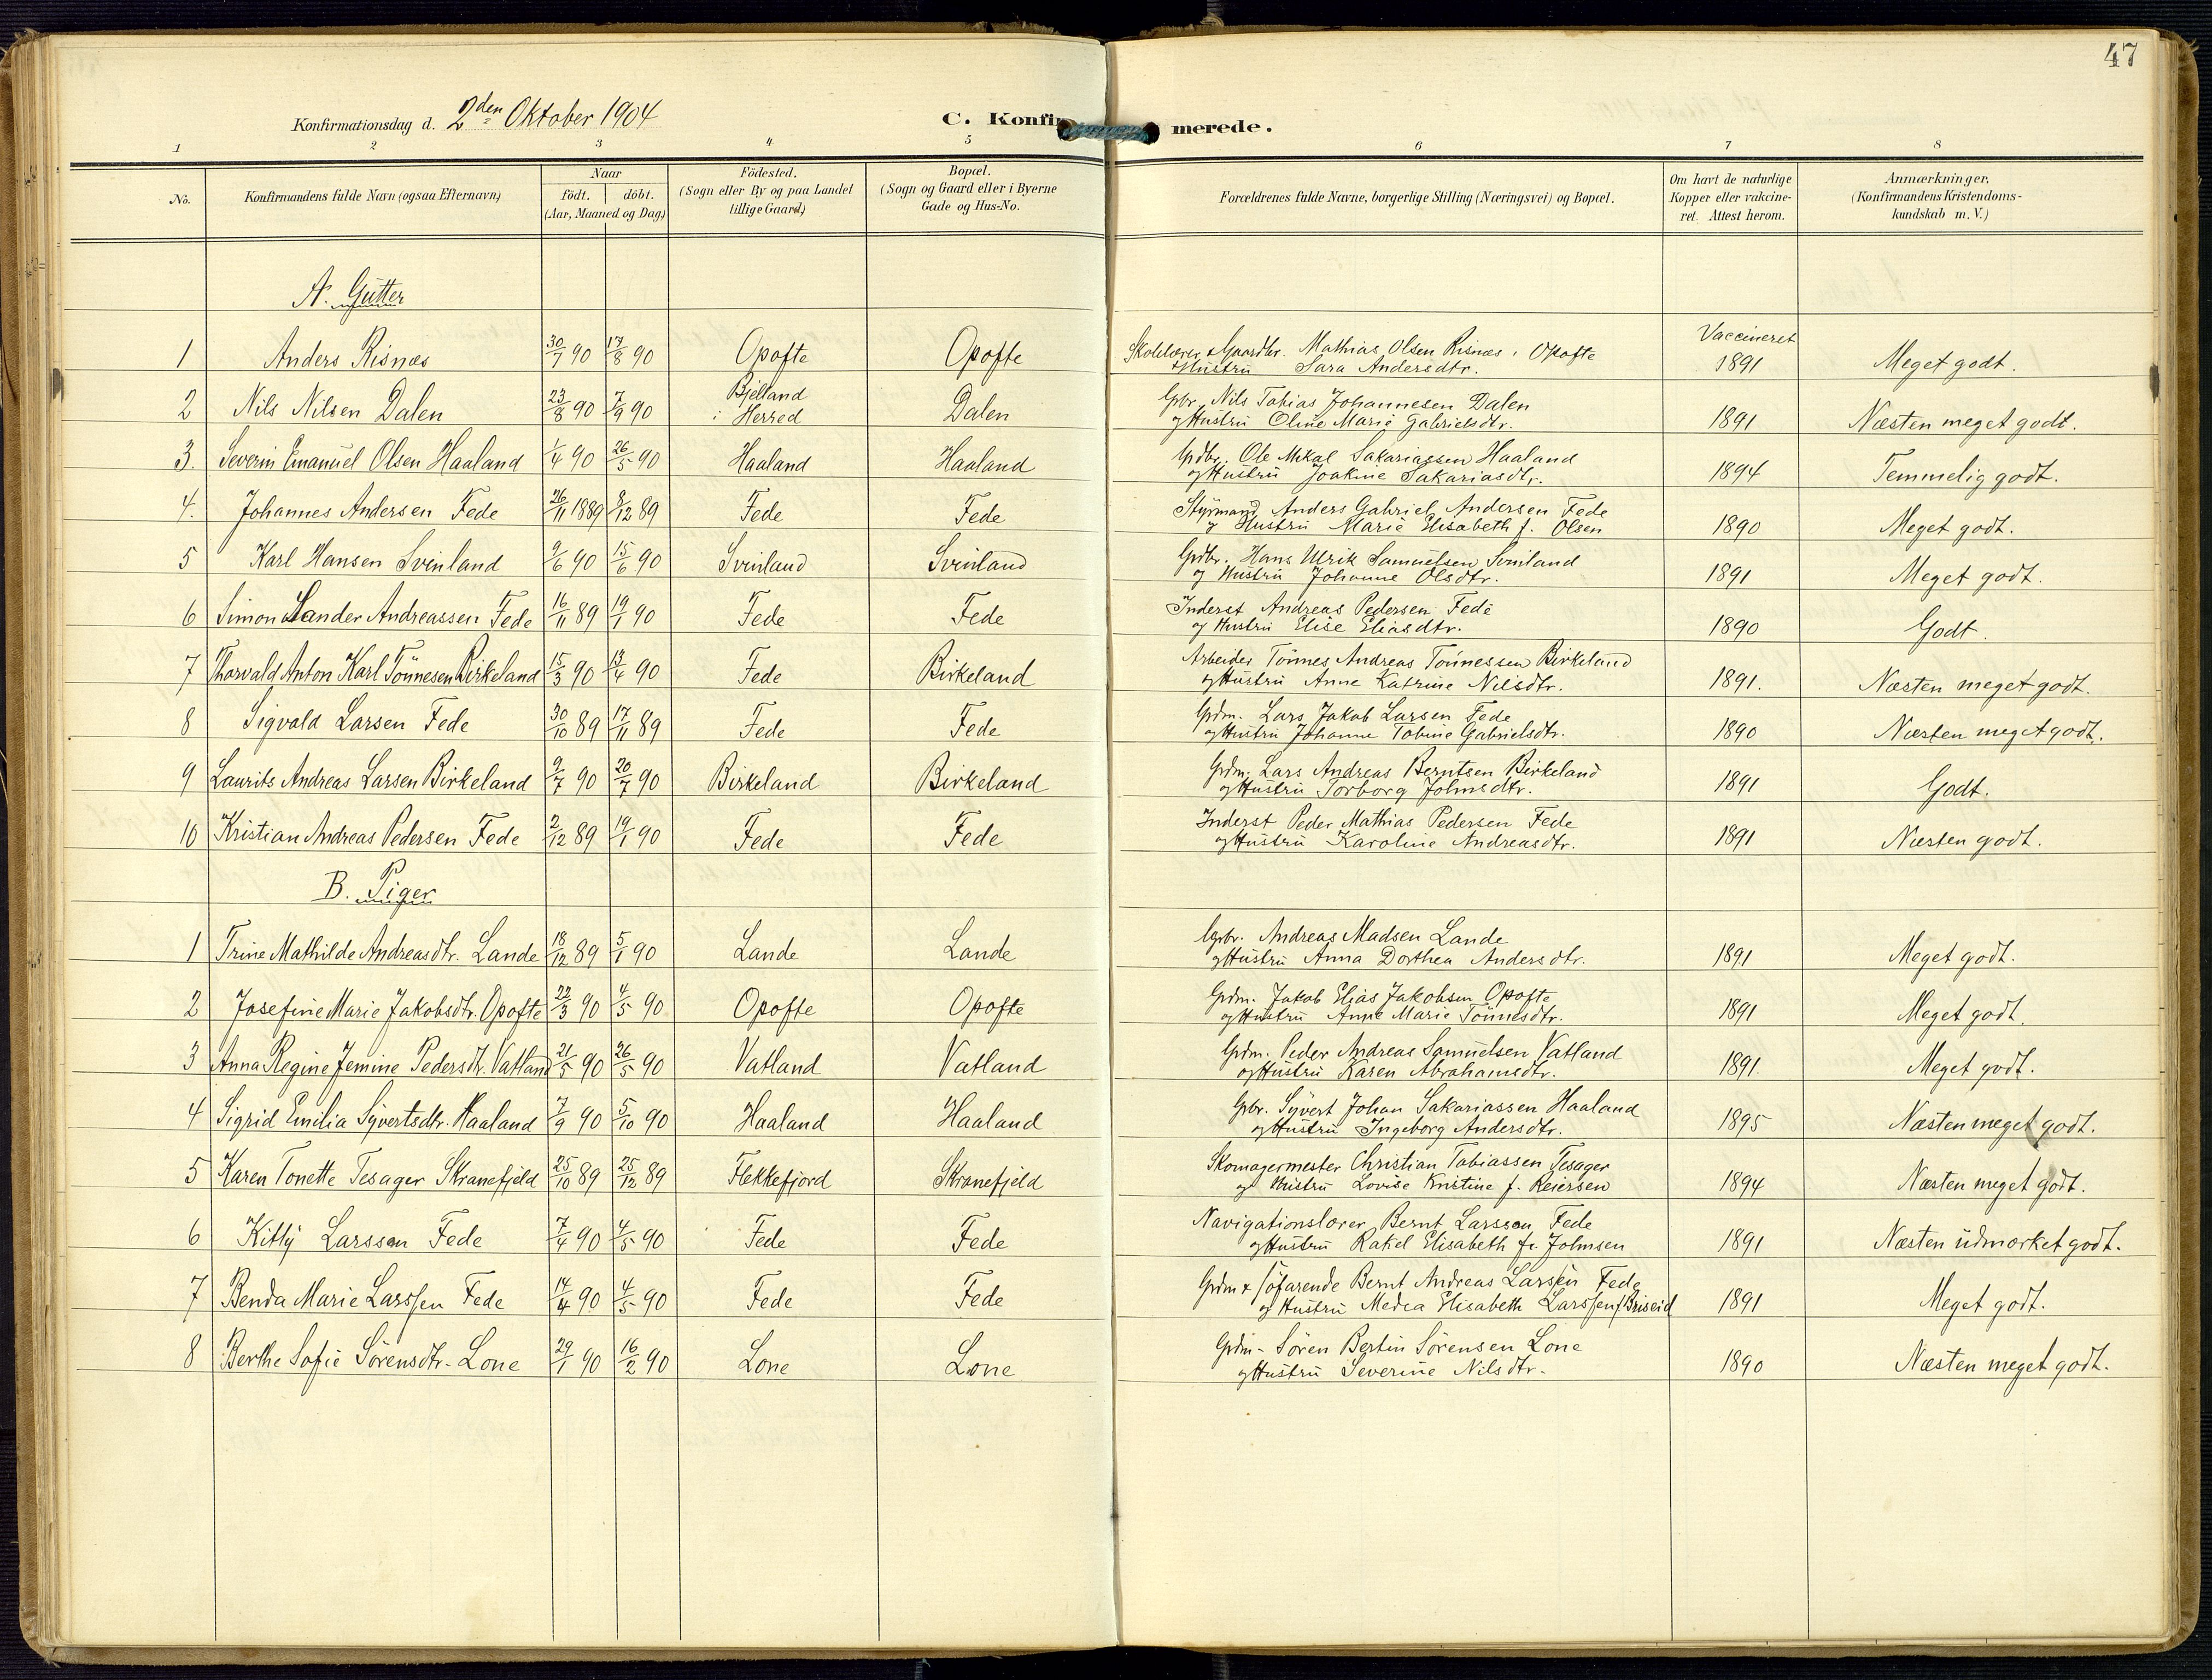 47
Konfirmationsdag d. 2den Oktober 1904
C. Konfirmerede.
1 2 3 4 5 6 7 8
No.
Konfirmandens fulde Navn (ogsaa Efternavn)
Naar
födt. döbt.
(Aar, Maaned og Dag)
Födested.
(Sogn eller By og paa Landet
tillige Gaard)
Bopæl.
(Sogn og Gaard eller i Byerne
Gade og Hus-No.
Forældrenes fulde Navne, borgerlige Stilling (Næringsvei) og Bopæl.
Om havt de naturlige
Kopper eller vakcine-
ret. Attest herom.
Anmærkninger.
(Konfirmandens Kristendoms-
kundskab m. V.)
A. Gutter
1 Anders Risnæs 30/7 90 17/8 90 Opofte Opofte Skolelærer & Gaardbr. Mathias Olsen Risnæs, Opofte Vaccineret
Hustru Sara Andersdtr. 1891 Meget godt.
2 Nils Nilsen Dalen 23/8 90 7/9 90 Bjelland Dalen Gbr. Nils Tobias Johannesen Dalen
i Herred og Hustru Oline Marie Gabrielsdtr. 1891 Næsten meget godt.
3. Severin Emanuel Olsen Haaland 1/4 90 26/5 90 Haaland Haaland Gdbr. Ole Mikal Sakariassen Haaland
og Hustru Joakine Sakariasdtr. 1894 Temmelig godt.
4. Johannes Andersen Fede 26/11 1889 8/12 89 Fede Fede Styrmand Anders Gabriel Andersen Fede
og Hustru Marie Elisabeth f. Olsen 1890 Meget godt.
5 Karl Hansen Svinland 9/6 90 15/6 90 Svinland Svinland Gdbr. Hans Ulrik Samuelsen Svinland
og Hustru Johanne Olsdtr. 1891 Meget godt.
6 Simon Sander Andreassen Fede 16/11 89 19/1 90 Fede Fede Inderst Andreas Pedersen Fede
og Hustru Elise Eliasdtr. 1890 Godt.
7 Thorvald Anton Karl Tönnesen Birkeland 15/3 90 13/4 90 Fede Birkeland Arbeider Tönnes Andreas Tönnessen Birkeland
og Hustru Anne Katrine Nilsdtr. 1891. Næsten meget godt.
8 Sigvald Larsen Fede 30/10 89 17/11 89 Fede Fede Gdm. Lars Jakob Larsen Fede
og Hustru Johanne Tobine Gabrielsdtr. 1890 Næsten meget godt.
9 Laurits Andreas Larsen Birkeland 9/7 90 20/7 90 Birkeland Birkeland Gdm. Lars Andreas Berntsen Birkeland
og Hustru Torborg Johnsdtr. 1891 Godt.
10 Kristian Andreas Pedersen Fede 2/12 89 19/1 90 Fede Fede Inderst Peder Mathias Pedersen Fede
og Hustru Karoline Andreasdtr. 1891 Næsten godt.
B. Piger
1 Trine Mathilde Andreasdtr. Lande 18/12 89 5/1 90 Lande Lande Gbr. Andreas Madsen Lande
og Hustru Anna Dorthea Andersdtr. 1891 Meget godt.
2 Josefine Marie Jakobsdtr. Opofte 22/3 90 4/5 90 Opofte Opofte Gdm. Jakob Elias Jakobsen Opofte
og Hustru Anne Marie Tönnesdtr. 1891 Meget godt.
3 Anna Regine Jemine Pedersdtr. Vatland 21/5 90 26/5 90 Vatland Vatland Gdm. Peder Andreas Samuelsen Vatland
og Hustru Karen Abrahamsdtr. 1891. Meget godt.
4 Sigrid Emilia Syvertsdtr. Haaland 7/9 90 5/10 90 Haaland Haaland Gbr. Syvert Johan Sakariassen Haaland
og Hustru Ingeborg Andersdtr. 1895 Næsten meget godt.
5 Karen Tonette Tesager Skranefjeld 25/10 89 25/12 89 Flekkefjord Skranefjeld Skomagermester Christian Tobiassen Tesager
og Hustru Lovise Kristine f. Reiersen 1894 Næsten meget godt.
6 Kitty Larssen Fede 7/4 90 4/5 90 Fede Fede Navigationslærer Bernt Larssen Fede
og Hustru Rakel Elisabeth f. Johnsen 1891 Næsten udmærket godt.
7 Benda Marie Larssen Fede 14/4 90 4/5 90 Fede Fede Gdm & söfarende Bernt Andreas Larssen Fede
og Hustru Medea Elisabeth Larssen f. Briseid 1891 Meget godt.
8 Berthe Sofie Sörensdtr. Lone 29/1 90 16/2 90 Lone Lone Gdm. Sören Bertin Sörensen Lone
og Hustru Severine Nilsdtr. 1890 Næsten meget godt.